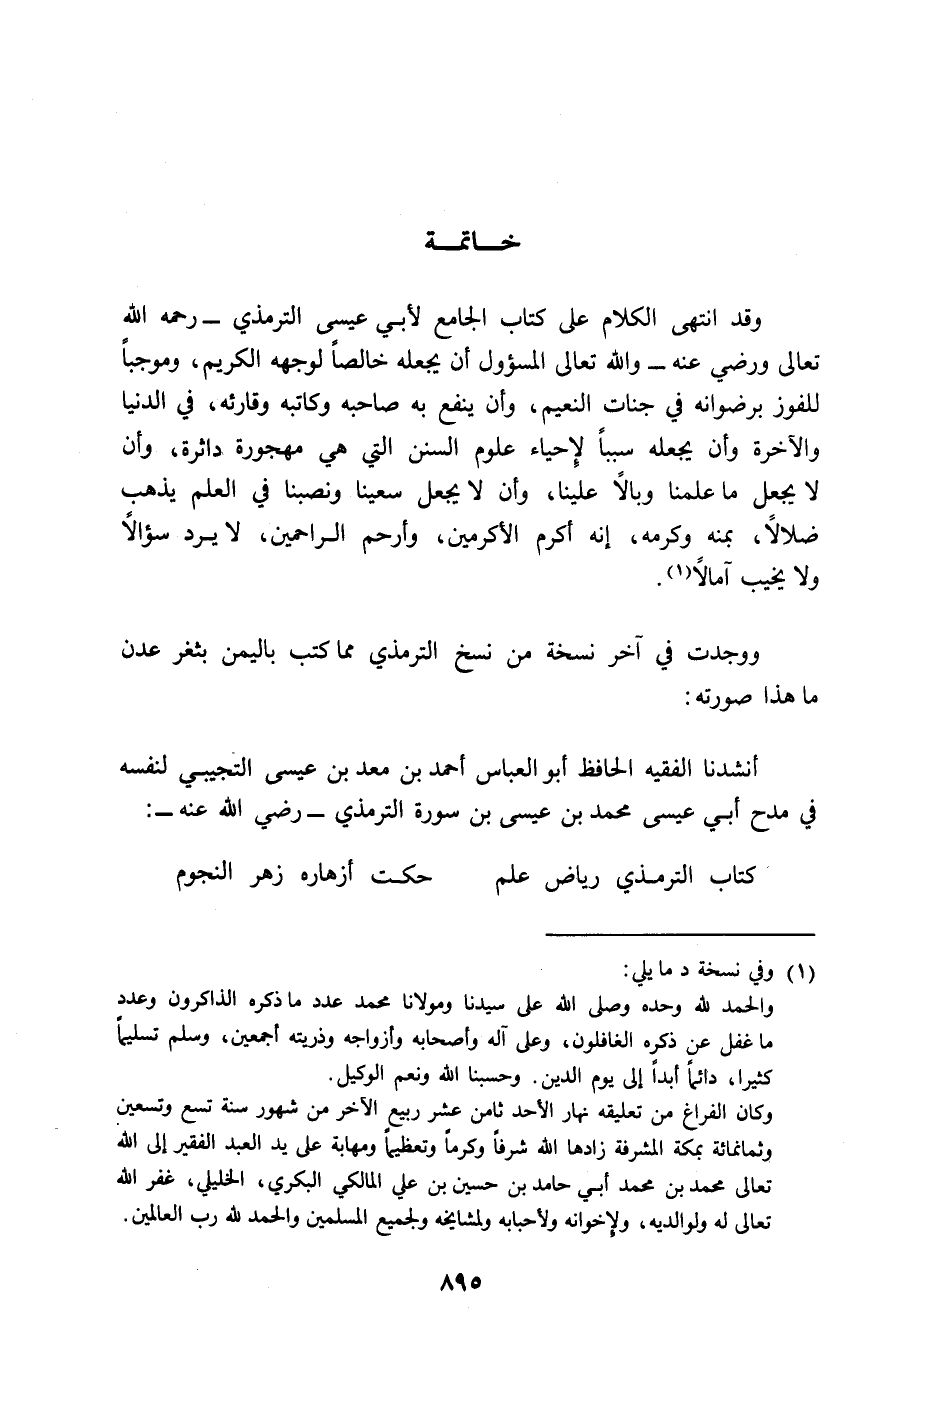 خـــاتمـــة
وقد انتهى الكلام على كتاب الجامع لأبي عيسى الترمذي ــ رحمه الله
تعالى ورضي عنه ــ والله تعالى المسؤول أن يجعله خالصاً لوجهه الكريم، وموجباً
للفوز برضوانه في جنات النعيم، وأن ينفع به صاحبه وكاتبه وقارئه، في الدنيا
والآخرة وأن يجعله سبباً لإحياء علوم السنن التي هي مهجورة دائرة، وأن
لا يجعل ما علمنا وبالًا علينا، وأن لا يجعل سعينا ونصبنا في العلم يذهب
ضلالًا، بمنه وكرمه، إنه أكرم الأكرمين، وأرحم الـراحمين، لا يـرد سؤالًا
ولا يخيب آمالًا(١).
ووجدت في آخر نسخة من نسخ الترمذي مما كتب باليمن بثغر عدن
ما هذا صورته:
أنشدنا الفقيه الحافظ أبو العباس أحمد بن معد بن عيسى التجيبي لنفسه
في مدح أبي عيسى محمد بن عيسى بن سورة الترمذي ــ رضي الله عنه ــ:
كتاب الترمـذي رياض علم حكـت أزهاره زهر النجوم
(١) وفي نسخة د ما يلي:
والحمد لله وحده وصلى الله على سيدنا ومولانا محمد عدد ما ذكره الذاكرون وعدد
ما غفل عن ذكره الغافلون، وعلى آله وأصحابه وأزواجه وذريته أجمعين، وسلم تسليماً
كثيرا، دائماً أبداً إلى يوم الدين. وحسبنا الله ونعم الوكيل.
وكان الفراغ من تعليقه نهار الأحد ثامن عشر ربيع الآخر من شهور سنة تسع وتسعين
وثمانمائة بمكة المشرفة زادها الله شرفاً وكرماً وتعظيماً ومهابة على يد العبد الفقير إلى الله
تعالى محمد بن محمد أبي حامد بن حسين بن علي المالكي البكري، الخليلي، غفر الله
تعالى له ولوالديه، ولإخوانه ولأحبابه ولمشايخه ولجميع المسلمين والحمد لله رب العالمين.
٨٩٥